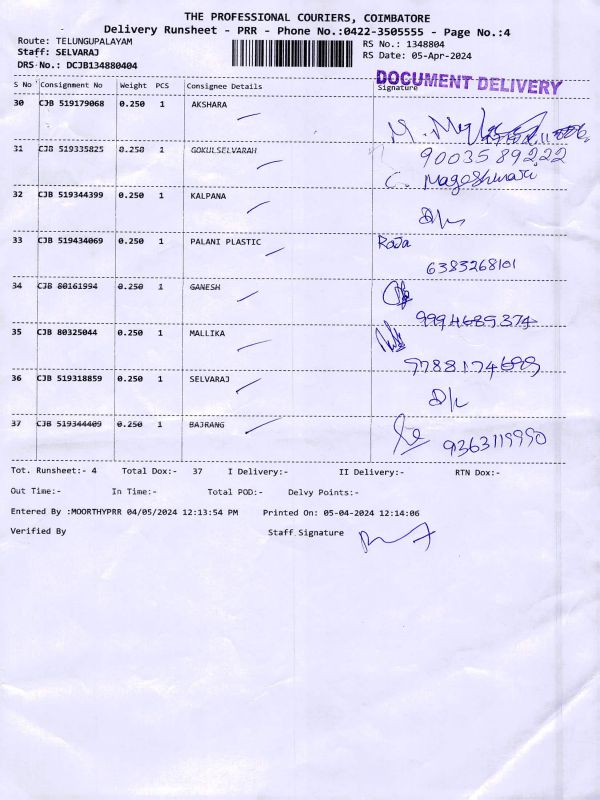 THE PROFESSIONAL COURIERS, COIMBATORE
Delivery Runsheet - PRR - Phone No.:0422-3505555 - Page No.:4
Route: TELUNGUPALAYAM RS No.: 1348804
Staff: SELVARAJ RS Date: 05-Apr-2024
DRS No.: DCJB134880404
DOCUMENT DELIVERY
S No Consignment No Weight PCS Consignee Details Signature
30 CJB 519179068 0.250 1 AKSHARA
31 CJB 519335825 0.250 1 GOKULSELVARAH 9003589222
C. Mageshwari
32 CJB 519344399 0.250 1 KALPANA
33 CJB 519434069 0.250 1 PALANI PLASTIC Raja
6383268101
34 CJB 80161994 0.250 1 GANESH
9994685374
35 CJB 80325044 0.250 1 MALLIKA
9788174699
36 CJB 519318859 0.250 1 SELVARAJ
37 CJB 519344409 0.250 1 BAJRANG
9363119990
Tot. Runsheet:- 4 Total Dox:- 37 I Delivery:- II Delivery:- RTN Dox:-
Out Time:- In Time:- Total POD:- Delvy Points:-
Entered By :MOORTHYPRR 04/05/2024 12:13:54 PM Printed On: 05-04-2024 12:14:06
Verified By Staff Signature